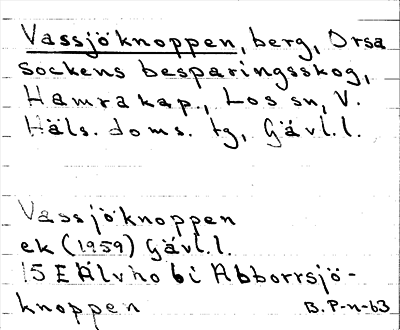 Vassjöknoppen, berg, Orsa
sockens besparingsskog,
Hamra kap., Los sn, V.
Häls. doms. tg, Gävl.l.
Vassjöknoppen
ek (1959) Gävl.l.
15E Älvho 6i Abborrsjö-
knoppen
B. P-n-63